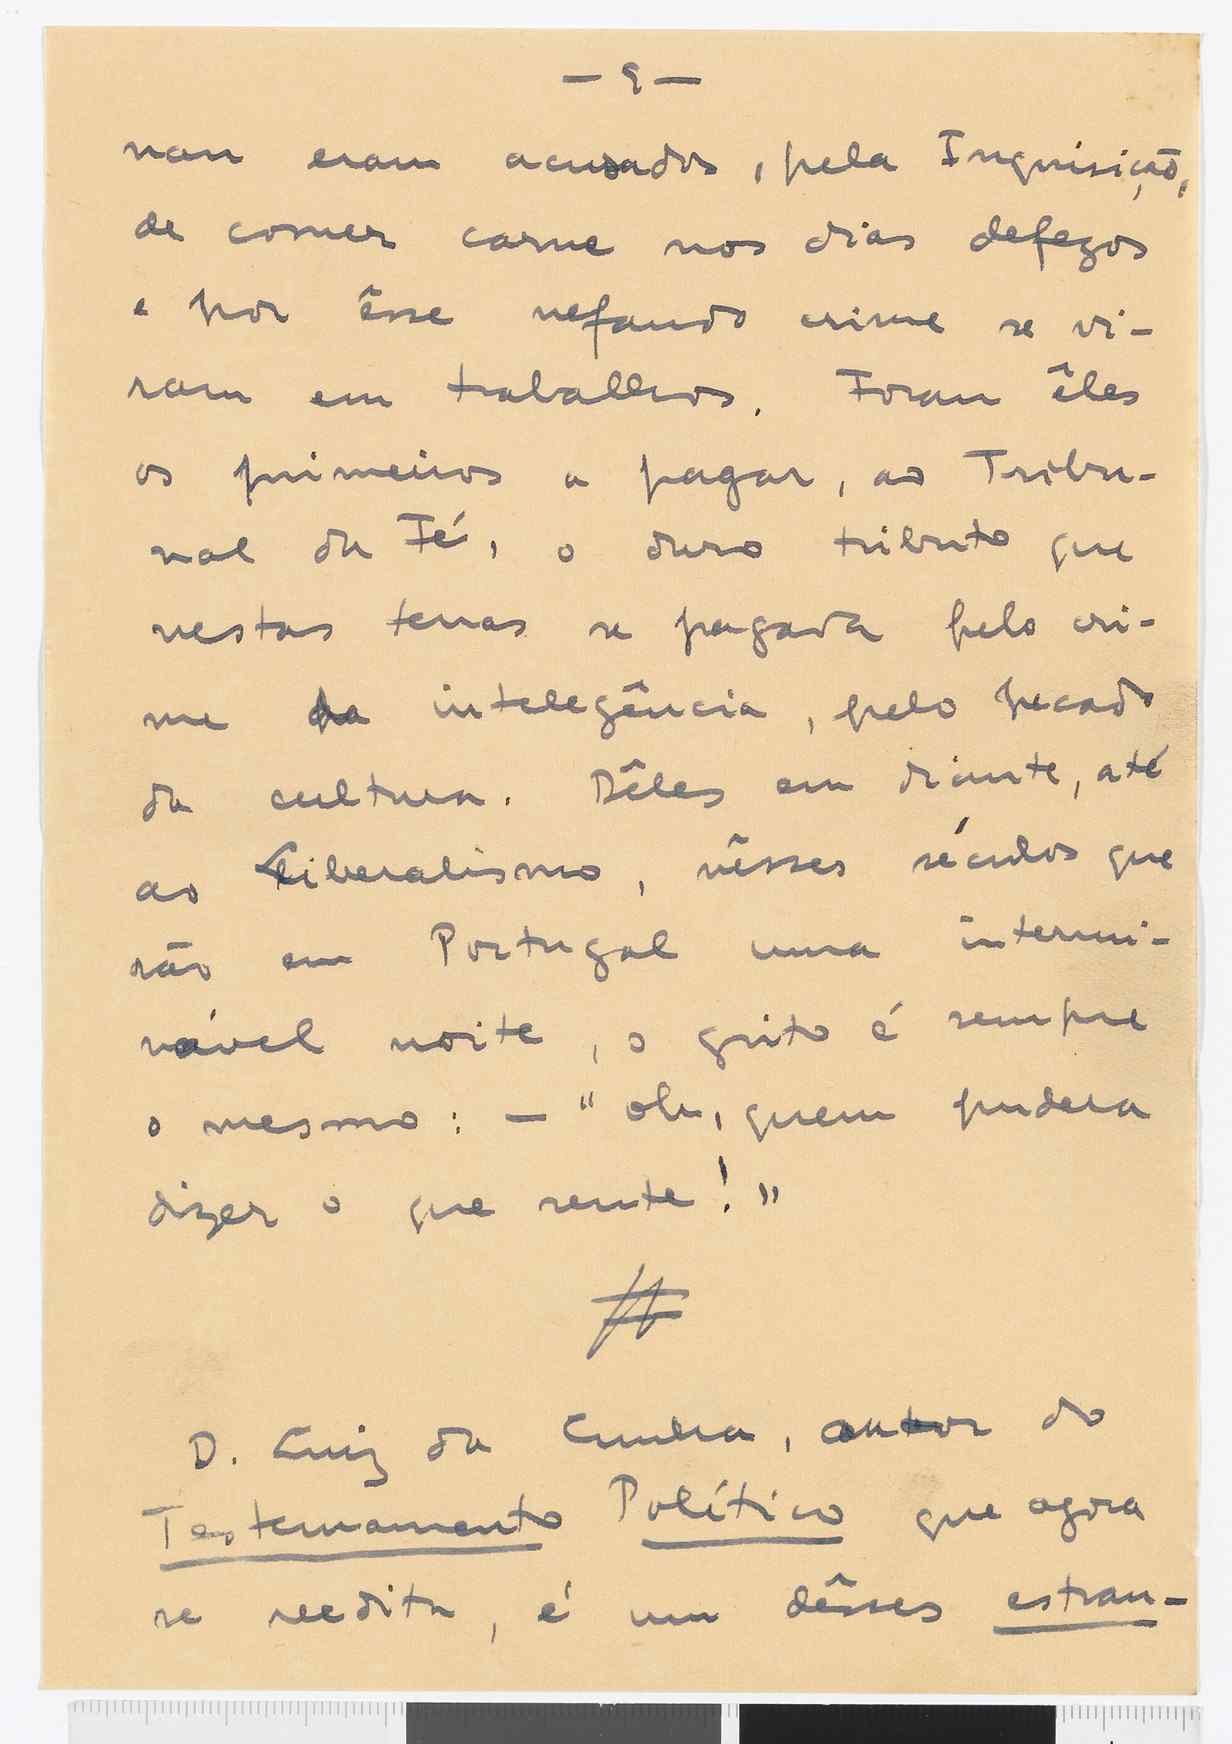 — 9 —
nan eram acusados, pela Inquisição,
de comer carne nos dias defezos
e por êsse nefando crime se vi-
ram em trabalhos. Foram êles
os primeiros a pagar, ao Tribu-
nal da Fé, o duro tributo que
nestas terras se pagava pelo cri-
me da intelegência, pelo pecado
da cultura. Dêles em diante, até
ao Liberalismo, nêsses séculos que
são em Portugal uma intermi-
nável noite, o grito é sempre
o mesmo: — "oh, quem pudera
dizer o que sente!"
#
D. Luiz da Cunha, autor do
Testemamento Político que agora
se reedita, é um dêsses estran-